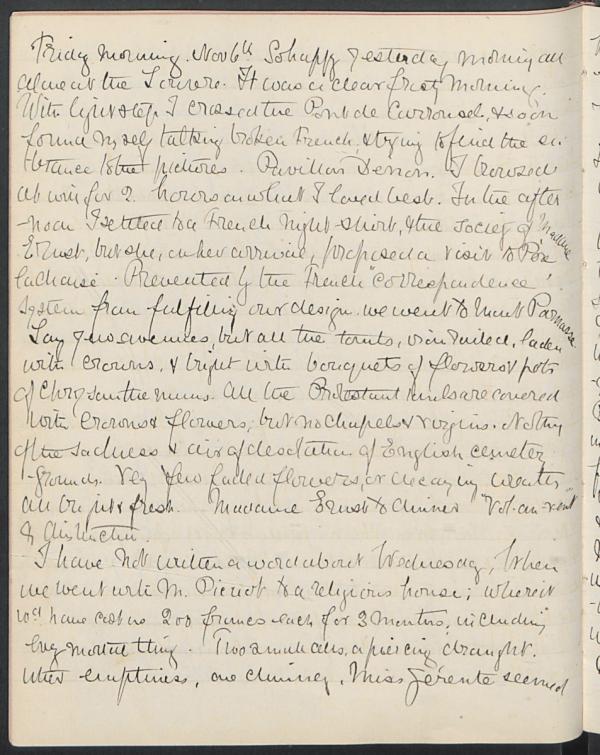 Friday Morning. Nov 6th So happy yesterday morning all
alone at the Louvre. It was a clear frosty morning.
With light step I crossed the Pont de Carrousel, & soon
found myself talking broken French, & trying to find the en
trance to the pictures. Pavillon Denon. I browsed
at will for 2 hours on what I loved best. In the after
-noon I settled to a French night-shirt, & the society of Madame
Ernust, but she, on her arrival, proposed a visit to Père
lachaise. Prevented by the French "correspondence"
system from fulfilling our design. we went to Mont Parnasse
Long & no avenues, but all the tombs, laden
with crowns, & bright with bouquets of flowers & pots
of chrysanthemums. All the Protestant tombs are covered
with crowns & flowers, but no chapels & virgins. Nothing
of the sadness & air of desolation of English cemetery
-grounds. Very few faded flowers, or decaying wreaths
all bright & fresh. Madame Ernust to dinner "Vol-au-vent"
& distinction.
I have not written a word about Wednesday, when
we went with M. Pierrot to a religious house; where it
wd have cost us 200 francs each for 3 months, including
every mortal thing. Two small, a piercing draught.
utter emptiness, one chimney. Miss Gérente seemed